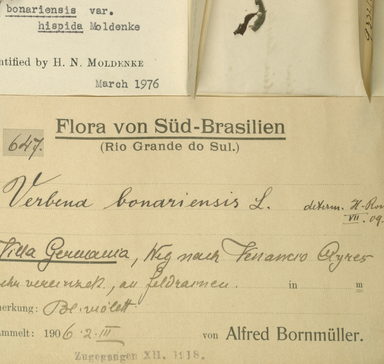 bonariensis var.
hispida Moldenke
ntified by H. N. MOLDENKE
March 1976
Flora von Süd-Brasilien
(Rio Grande do Sul.)
647.
Verbena bonariensis L. determ. H. Ros
VII. 09.
Villa Germania, Weg nach Venancio Ayres
sehr vereinzelt, an Feldrainen. in m
merkung: Bl. violett
ammelt: 1906. 2. III von Alfred Bornmüller.
Zugegangen XII. 1918.